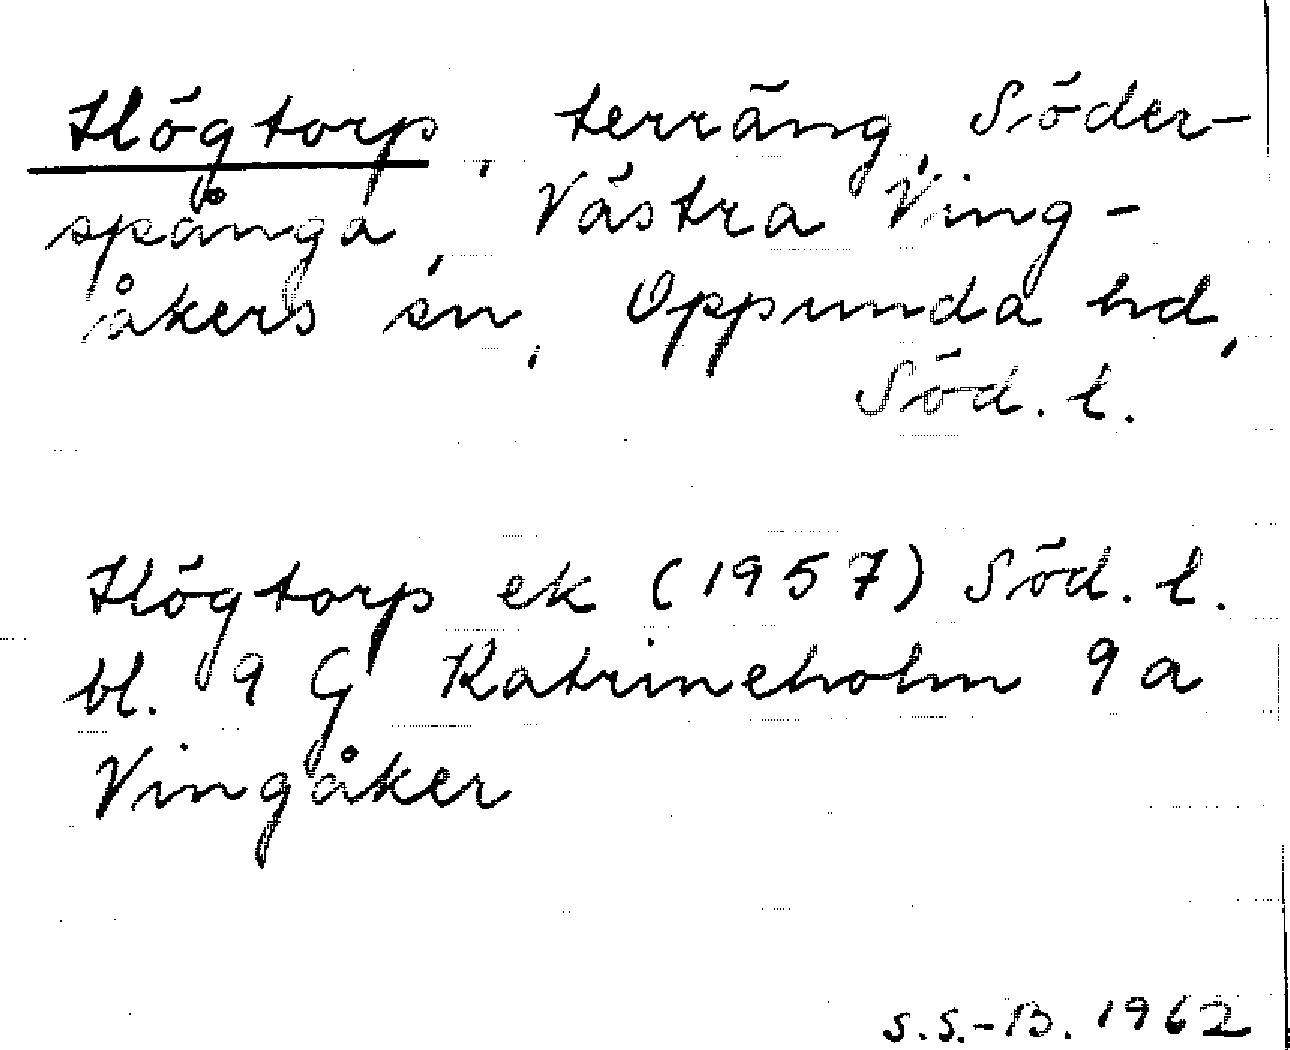 Högtorp, terräng, Söder-
spånga, Västra Ving-
åkers sn, Oppunda hd,
Söd. l.
Högtorp ek (1957) Söd. l.
bl. 9 G Katrineholm 9 a
Vingåker
S.S.-B. 1962